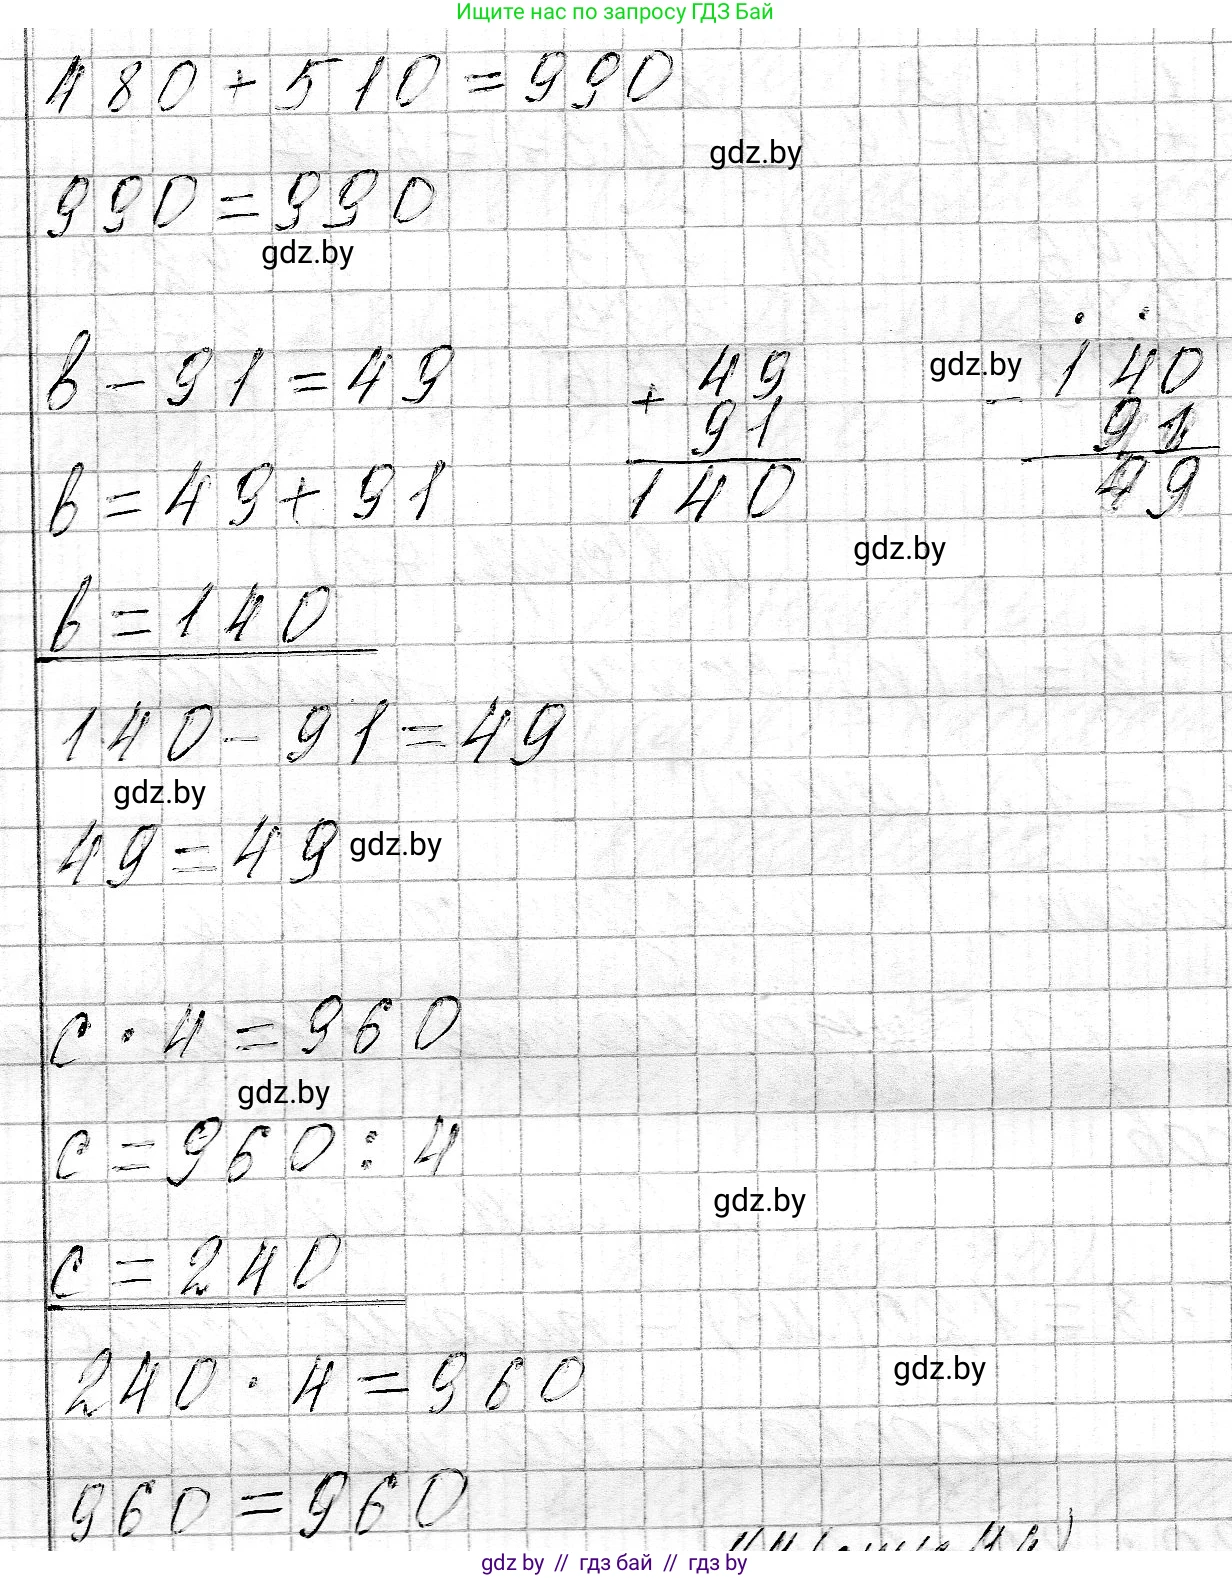 Ищите нас по запросу ГДЗ Бай
480 + 510 = 990
gdz.by
990 = 990
gdz.by
в - 91 = 49
+ 49
91
140
gdz.by
- 140
91
49
в = 49 + 91
gdz.by
в = 140
140 - 91 = 49
gdz.by
49 = 49
gdz.by
с · 4 = 960
gdz.by
с = 960 : 4
gdz.by
с = 240
240 · 4 = 960
gdz.by
960 = 960
gdz.by // гдз бай // gdz.by